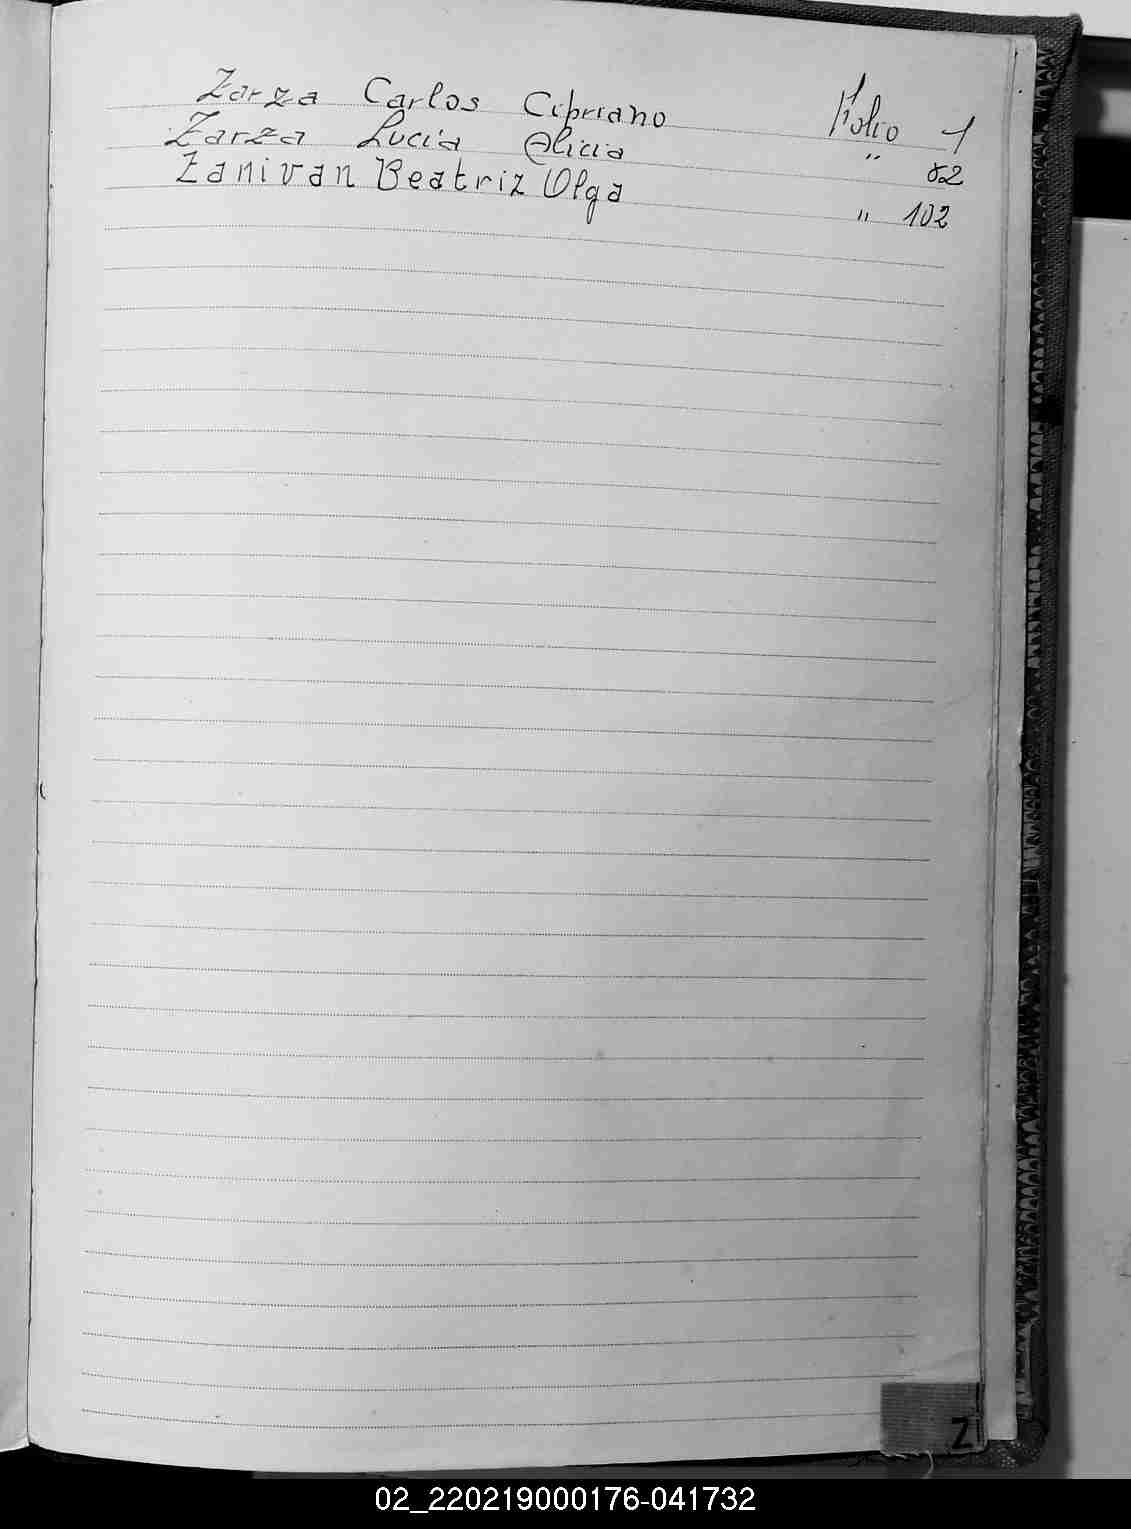 Zarza Carlos Cipriano Folio 1
Zarza Lucia Alicia " 82
Zanivan Beatriz Olga " 102
Z
02_220219000176-041732